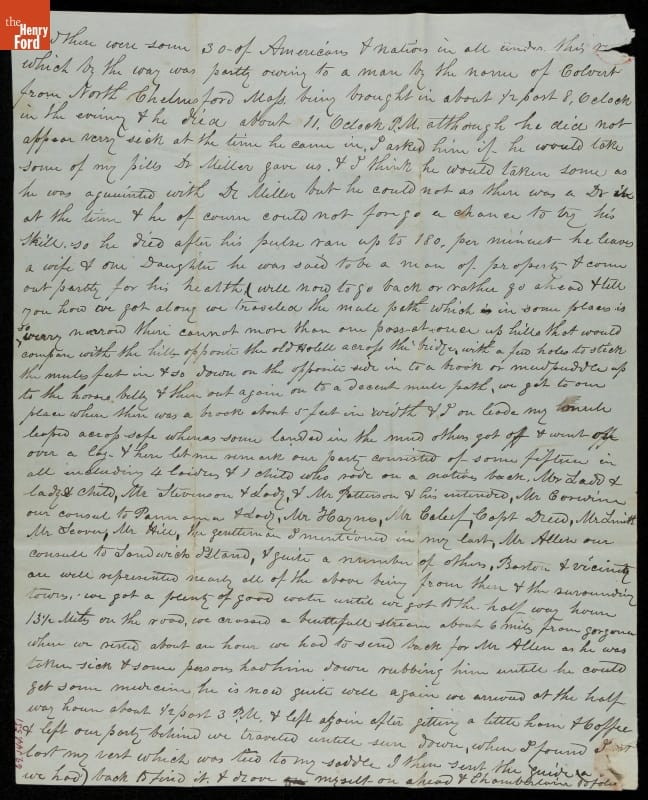 the
Henry
Ford
there were some 30 of Americans & natives in all under this
which by the way was partly owing to a man by the name of Colvert
from North Chelmsford Mass. being brought in about ½ past 8, Oclock
in the eveing & he died about 11, Oclock P.M. although he did not
appear verry sick at the time he came in, I asked him if he would take
some of my pills Dr Miller gave us. & I think he would taken some as
he was aquainted with Dr Miller but he could not as there was a Dr in
at the time & he of course could not forgo a chance to try his
Skill. so he died after his pulse ran up to 180, per minuet he leaves
a wife & one Daughter he was said to be a man of property & come
out partly for his health, (will now to go back or rather go ahead & tell
you how we got along we traveled the mule path which is in some places is
so
verry narrow there cannot more than one pass at once up hills that would
compare with the hill opposite the old Hotell across the bridge, with a few holes to stick
the mules feet in & so down on the opposite side in to a brook or mudpuddle up
to the horses belly & then out again on to a decent mule path, we got to one
place where there was a brook about 5 feet in width & I on leade my mule
leaped across safe whereas some landed in the mud others got off & went off
over a log & here let me remark our party consisted of some fifteen in
all including 4 Laidies & 1 child who rode on a natives back. Mr Ladd &
lady & child, Mr Stevenson & Lady, & Mr Patterson & his intended, Mr Corwine
our consul to Pannama & Lady, Mr Haynes, Mr Caleef, Capt Dreed, Mr Smith
Mr Seaver, Mr Hill, the gentleman I mentioned in my last, Mr Allen our
consule to Sandwich Island, & quite a number of others, Boston & vicinity
are well represented nearly all of the above being from there & the surounding
towns, we got a plenty of good water until we got to the half way house
13½ Miles on the road, we crossed a beuttifull stream about 6 miles from gorgona
where we rested about an hour we had to send back for Mr Allen as he was
taken sick & some persons had him down rubbing him untill he could
get some medicine, he is now quite well again we arrived at the half
way house about ½ past 3 P.M, & left again after getting a little ham & Coffee
& left our party behind we traveled untill sun down, when I found I
lost my vest which was tied to my saddle I then sent the guide
we had back to find it. & drove myself on ahead & Chamberlain